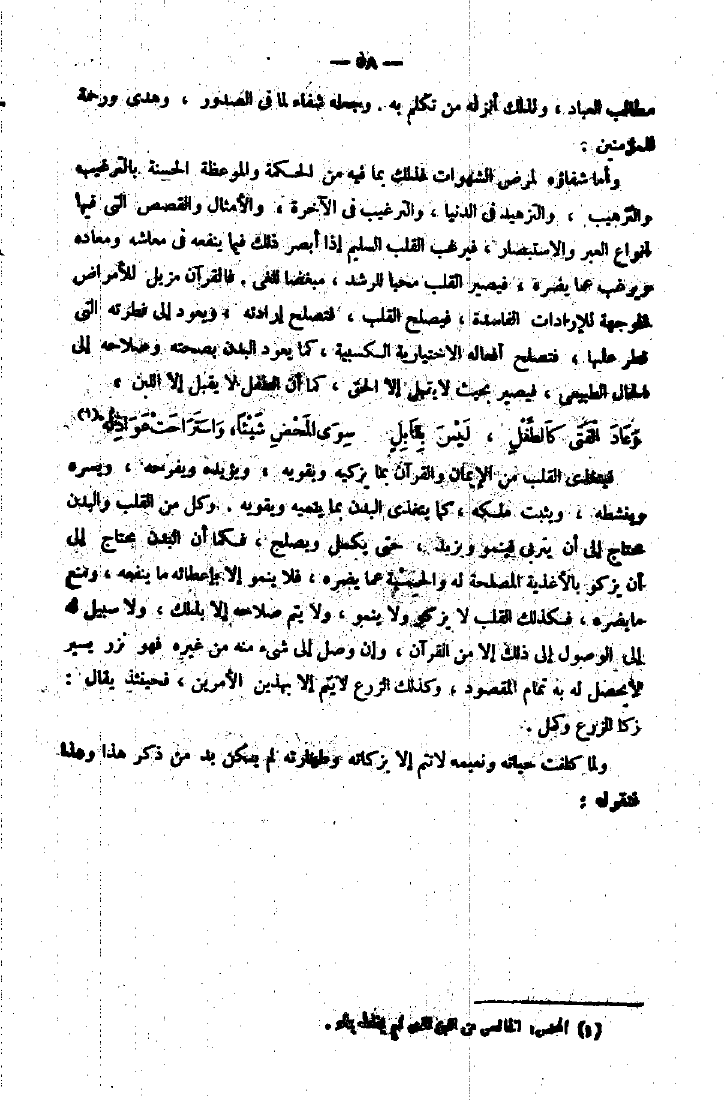 — ٥٨ —
مطالب العباد ، ولذلك أنزله من تكلم به . وجعله شفاء لما فى الصدور ، وهدى ورحمة
للمؤمنين :
وأما شفاؤه لمرض الشهوات فذلك بما فيه من الحكمة والموعظة الحسنة بالترغيب
والترهيب ، والتزهيد فى الدنيا ، والترغيب فى الآخرة ، والأمثال والقصص التى فيها
أنواع العبر والاستبصار ، فيرغب القلب السليم إذا أبصر ذلك فيما ينفعه فى معاشه ومعاده
ويرغب عما يضره ، فيصير القلب محبا للرشد ، مبغضا للغى . فالقرآن مزيل للأمراض
الموجهة للإرادات الفاسدة ، فيصلح القلب ، فتصلح إرادته ، ويعود إلى فطرته التى
فطر عليها ، فتصلح أفعاله الاختيارية الكسبية ، كما يعود البدن بصحته وصلاحه إلى
الحال الطبيعى ، فيصير بحيث لا يقبل إلا الحق ، كما أن الطفل لا يقبل إلا اللبن ،
وَعَادَ الْفَتَى كَالطِّفْلِ ، لَيْسَ بِقَابِلٍ سِوَى الْمَحْضِ شَيْئًا، وَاسْتَرَاحَتْ عَوَاذِلُهُ (١)
فيتغذى القلب من الإيمان والقرآن بما يزكيه ويقويه ، ويؤيده ويفرحه ، ويسره
وينشطه ، ويثبت ملكه ، كما يتغذى البدن بما ينميه ويقويه . وكل من القلب والبدن
محتاج إلى أن يتربى فينمو ويزيد ، حتى يكمل ويصلح ، فكما أن البدن محتاج إلى
أن يزكو بالأغذية المصلحة له والحمية عما يضره ، فلا ينمو إلا بإعطائه ما ينفعه ، ومنع
ما يضره ، فكذلك القلب لا يزكو ولا ينمو ، ولا يتم صلاحه إلا بذلك ، ولا سبيل له
إلى الوصول إلى ذلك إلا من القرآن ، وإن وصل إلى شىء منه من غيره فهو نزر يسير
لا يحصل له به تمام المقصود ، وكذلك الزرع لا يتم إلا بهذين الأمرين ، فحينئذ يقال :
زكا الزرع وكمل .
ولما كانت حياته ونعيمه لا تتم إلا بزكاته وطهارته لم يكن بد من ذكر هذا وهذا
فنقول :
(١) المحض: الخالص من اللبن الذى لم يخلط بماء .